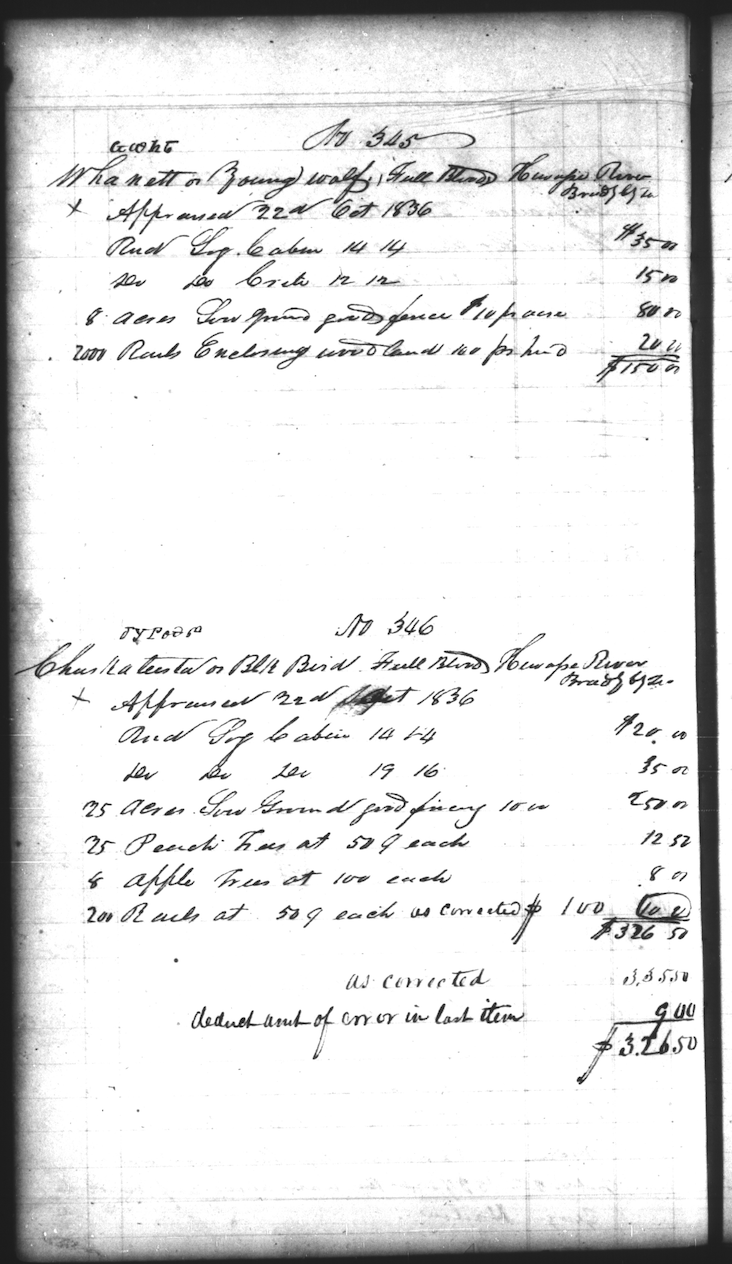 No 345
Wha nett or Young wolf, Full Blood Hiwasse River
x Appraised 22d Oct 1836
Rud Log Cabin 14 14 $35 00
Do Do Crib 12 12 15 00
8 acres Low ground good fence $10 pr acre 80 00
2000 Rails Enclosing woodland 100 pr hund 20 00
$150 00
No 346
or Blk Bird Full Blood Hiwasse River
x Appraised 22d Oct 1836
Rud Log Cabin 14 14 $20.00
Do Do Do 19 16 35 00
25 Acres Low Ground good fencing 10 00 250 00
25 Peach Trees at 50 each 12 50
8 Apple Trees at 100 each 8 00
200 Rails at 50 each as corrected $ 100 10 0
$326 50
as corrected 335.50
deduct amt of error in last item 9 00
$326.50